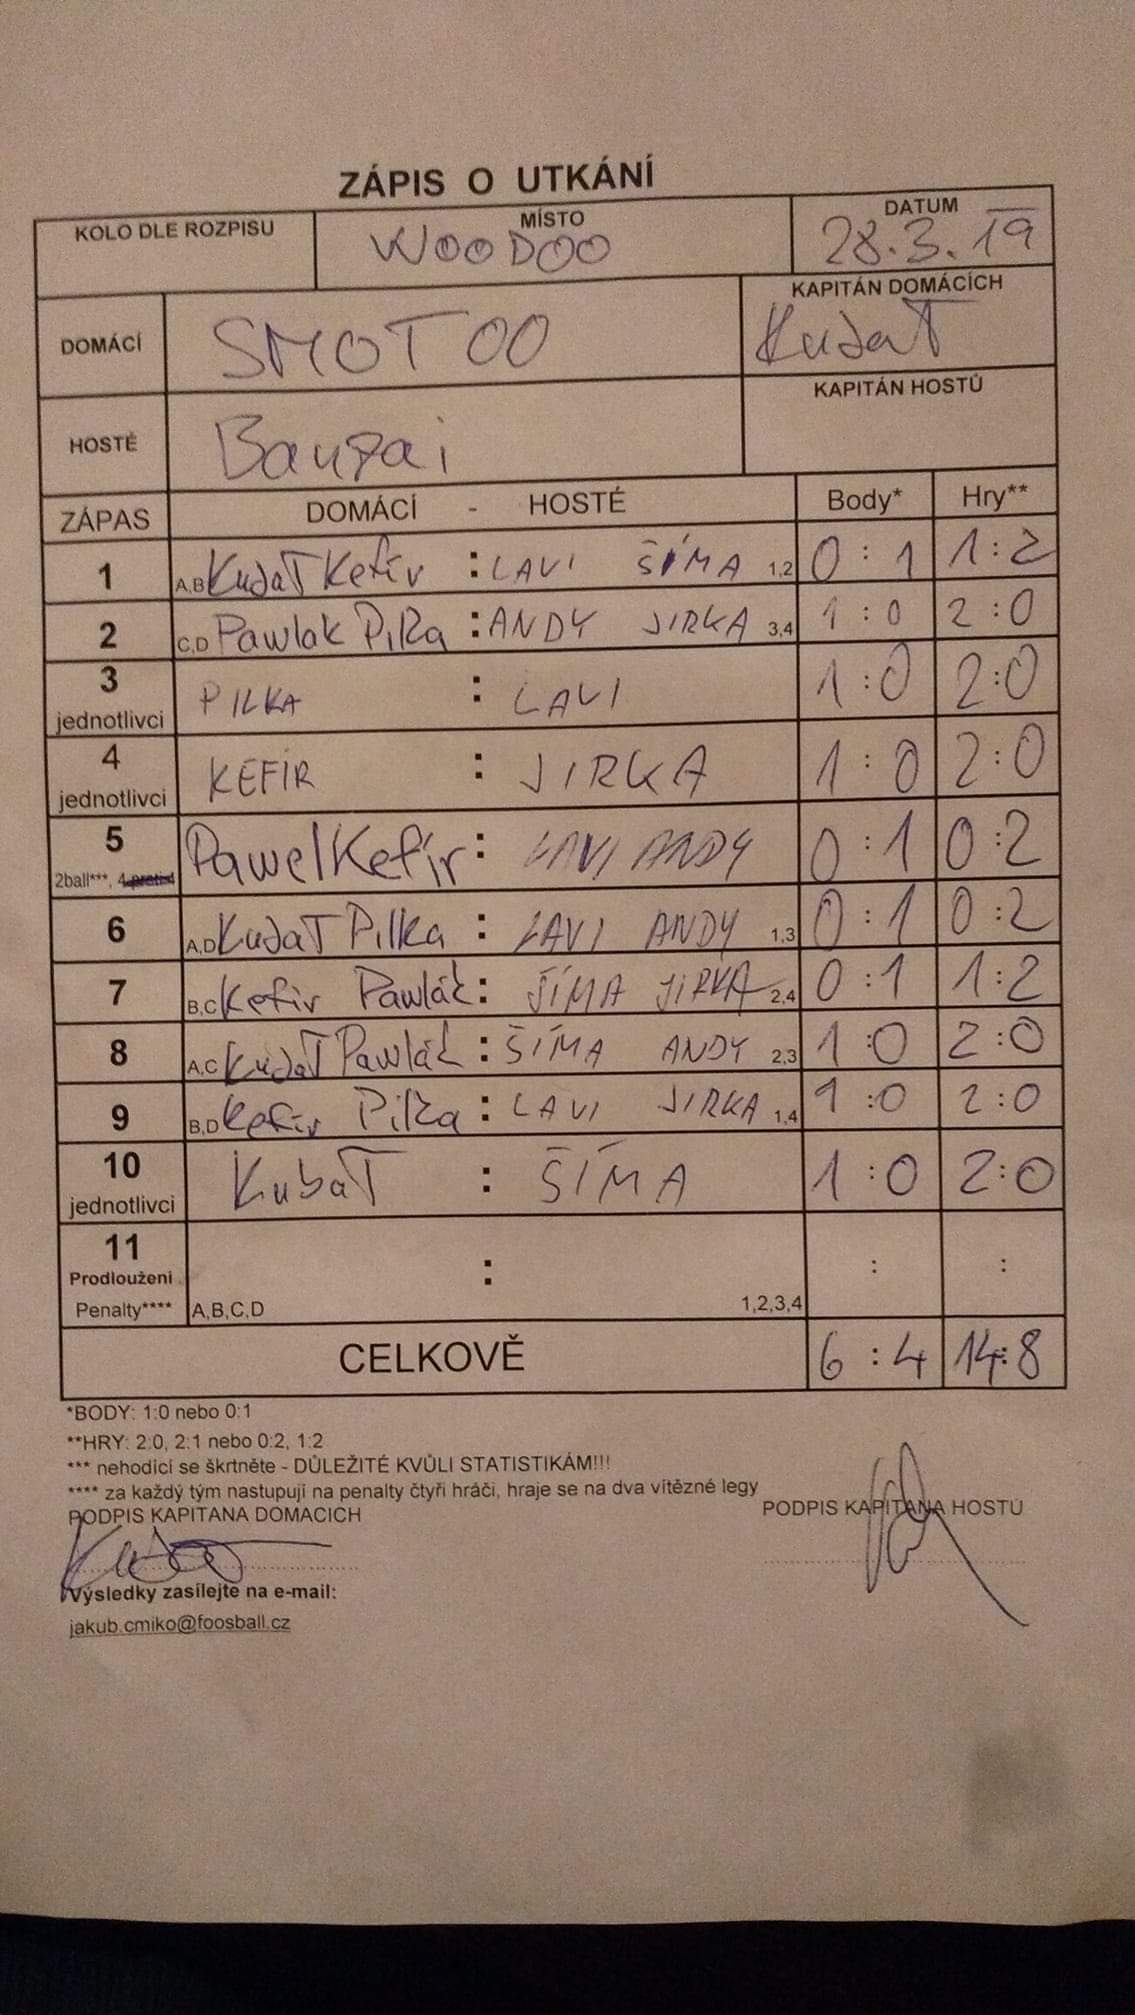 ZÁPIS O UTKÁNÍ
KOLO DLE ROZPISU MÍSTO DATUM
WOODOO 28.3.19
DOMÁCÍ SMOTOO KAPITÁN DOMÁCÍCH
KubaT
HOSTÉ Banzai KAPITÁN HOSTŮ
ZÁPAS DOMÁCÍ - HOSTÉ Body* Hry**
1 A,B KubaT Kefír : LAVI ŠÍMA 1,2 0 : 1 1 : 2
2 C,D Pawlak Pilka : ANDY JIRKA 3,4 1 : 0 2 : 0
3 jednotlivci PILKA : LAVI 1 : 0 2 : 0
4 jednotlivci KEFÍR : JIRKA 1 : 0 2 : 0
5 Pawel Kefír : LAVI ANDY 0 : 1 0 : 2
2ball***, 4 proti 4
6 A,D KubaT Pilka : LAVI ANDY 1,3 0 : 1 0 : 2
7 B,C Kefír Pawlák : ŠÍMA JIRKA 2,4 0 : 1 1 : 2
8 A,C KubaT Pawlák : ŠÍMA ANDY 2,3 1 : 0 2 : 0
9 B,D Kefír Pilka : LAVI JIRKA 1,4 1 : 0 2 : 0
10 jednotlivci KubaT : ŠÍMA 1 : 0 2 : 0
11 : : :
Prodloužení
Penalty**** A,B,C,D 1,2,3,4
CELKOVĚ 6 : 4 14 : 8
*BODY: 1:0 nebo 0:1
**HRY: 2:0, 2:1 nebo 0:2, 1:2
*** nehodící se škrtněte - DŮLEŽITÉ KVŮLI STATISTIKÁM!!!
**** za každý tým nastupují na penalty čtyři hráči, hraje se na dva vítězné legy
PODPIS KAPITÁNA DOMÁCÍCH PODPIS KAPITÁNA HOSTŮ
Výsledky zasílejte na e-mail:
jakub.cmiko@foosball.cz